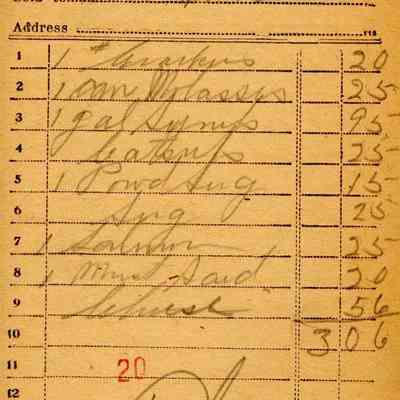 Address
1 1 # Crackers 20
2 1 can Molasses 25
3 1 gal Syrup 95
4 Catsup 25
5 1 Powd Sug 15
6 Sug 25
7 1 Salmon 25
8 1 Must Sard 20
9 Cheese 56
10 3 06
11 20
12